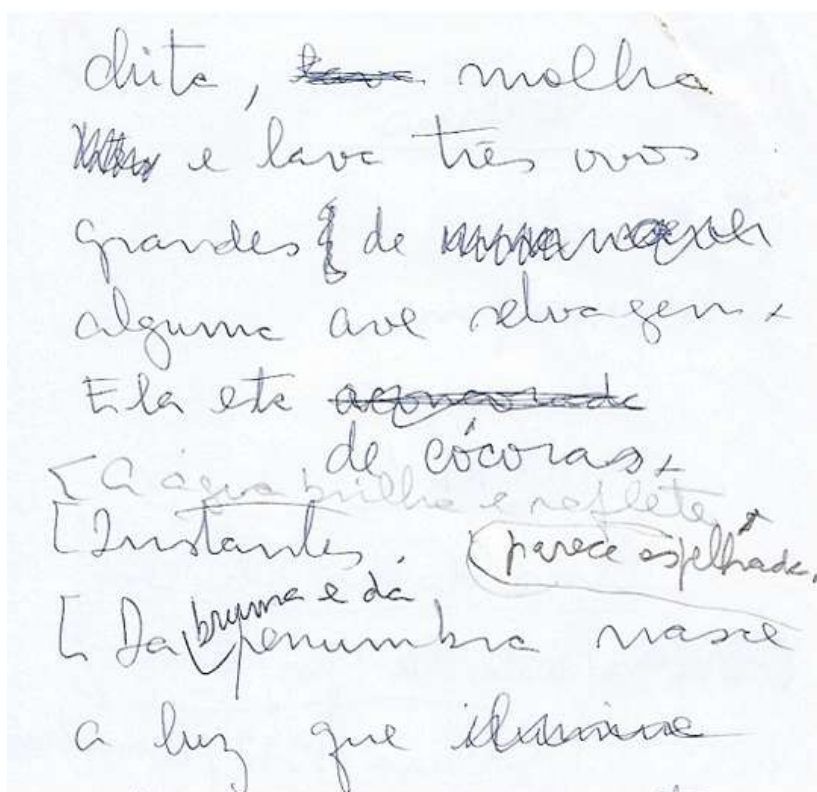 chita, molha
e lava três ovos
grandes de
alguma ave selvagem.
Ela etc
de cócoras.
[A água brilha e reflete,
parece espelhada.
[Instantes.
bruma e da
[Da penumbra nasce
a luz que ilumine